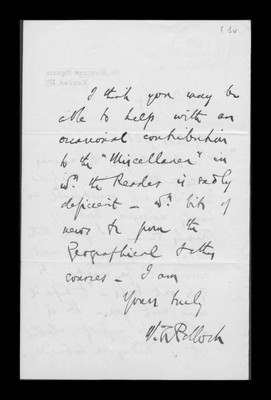 I think you may be
able to help with an
occasional contribution
to the "Miscellanea" in
wh. the Reader is sadly
deficient - wh. bits of
news to from the
Geographical & other
courses - I am
Yours truly
W. F. Pollock